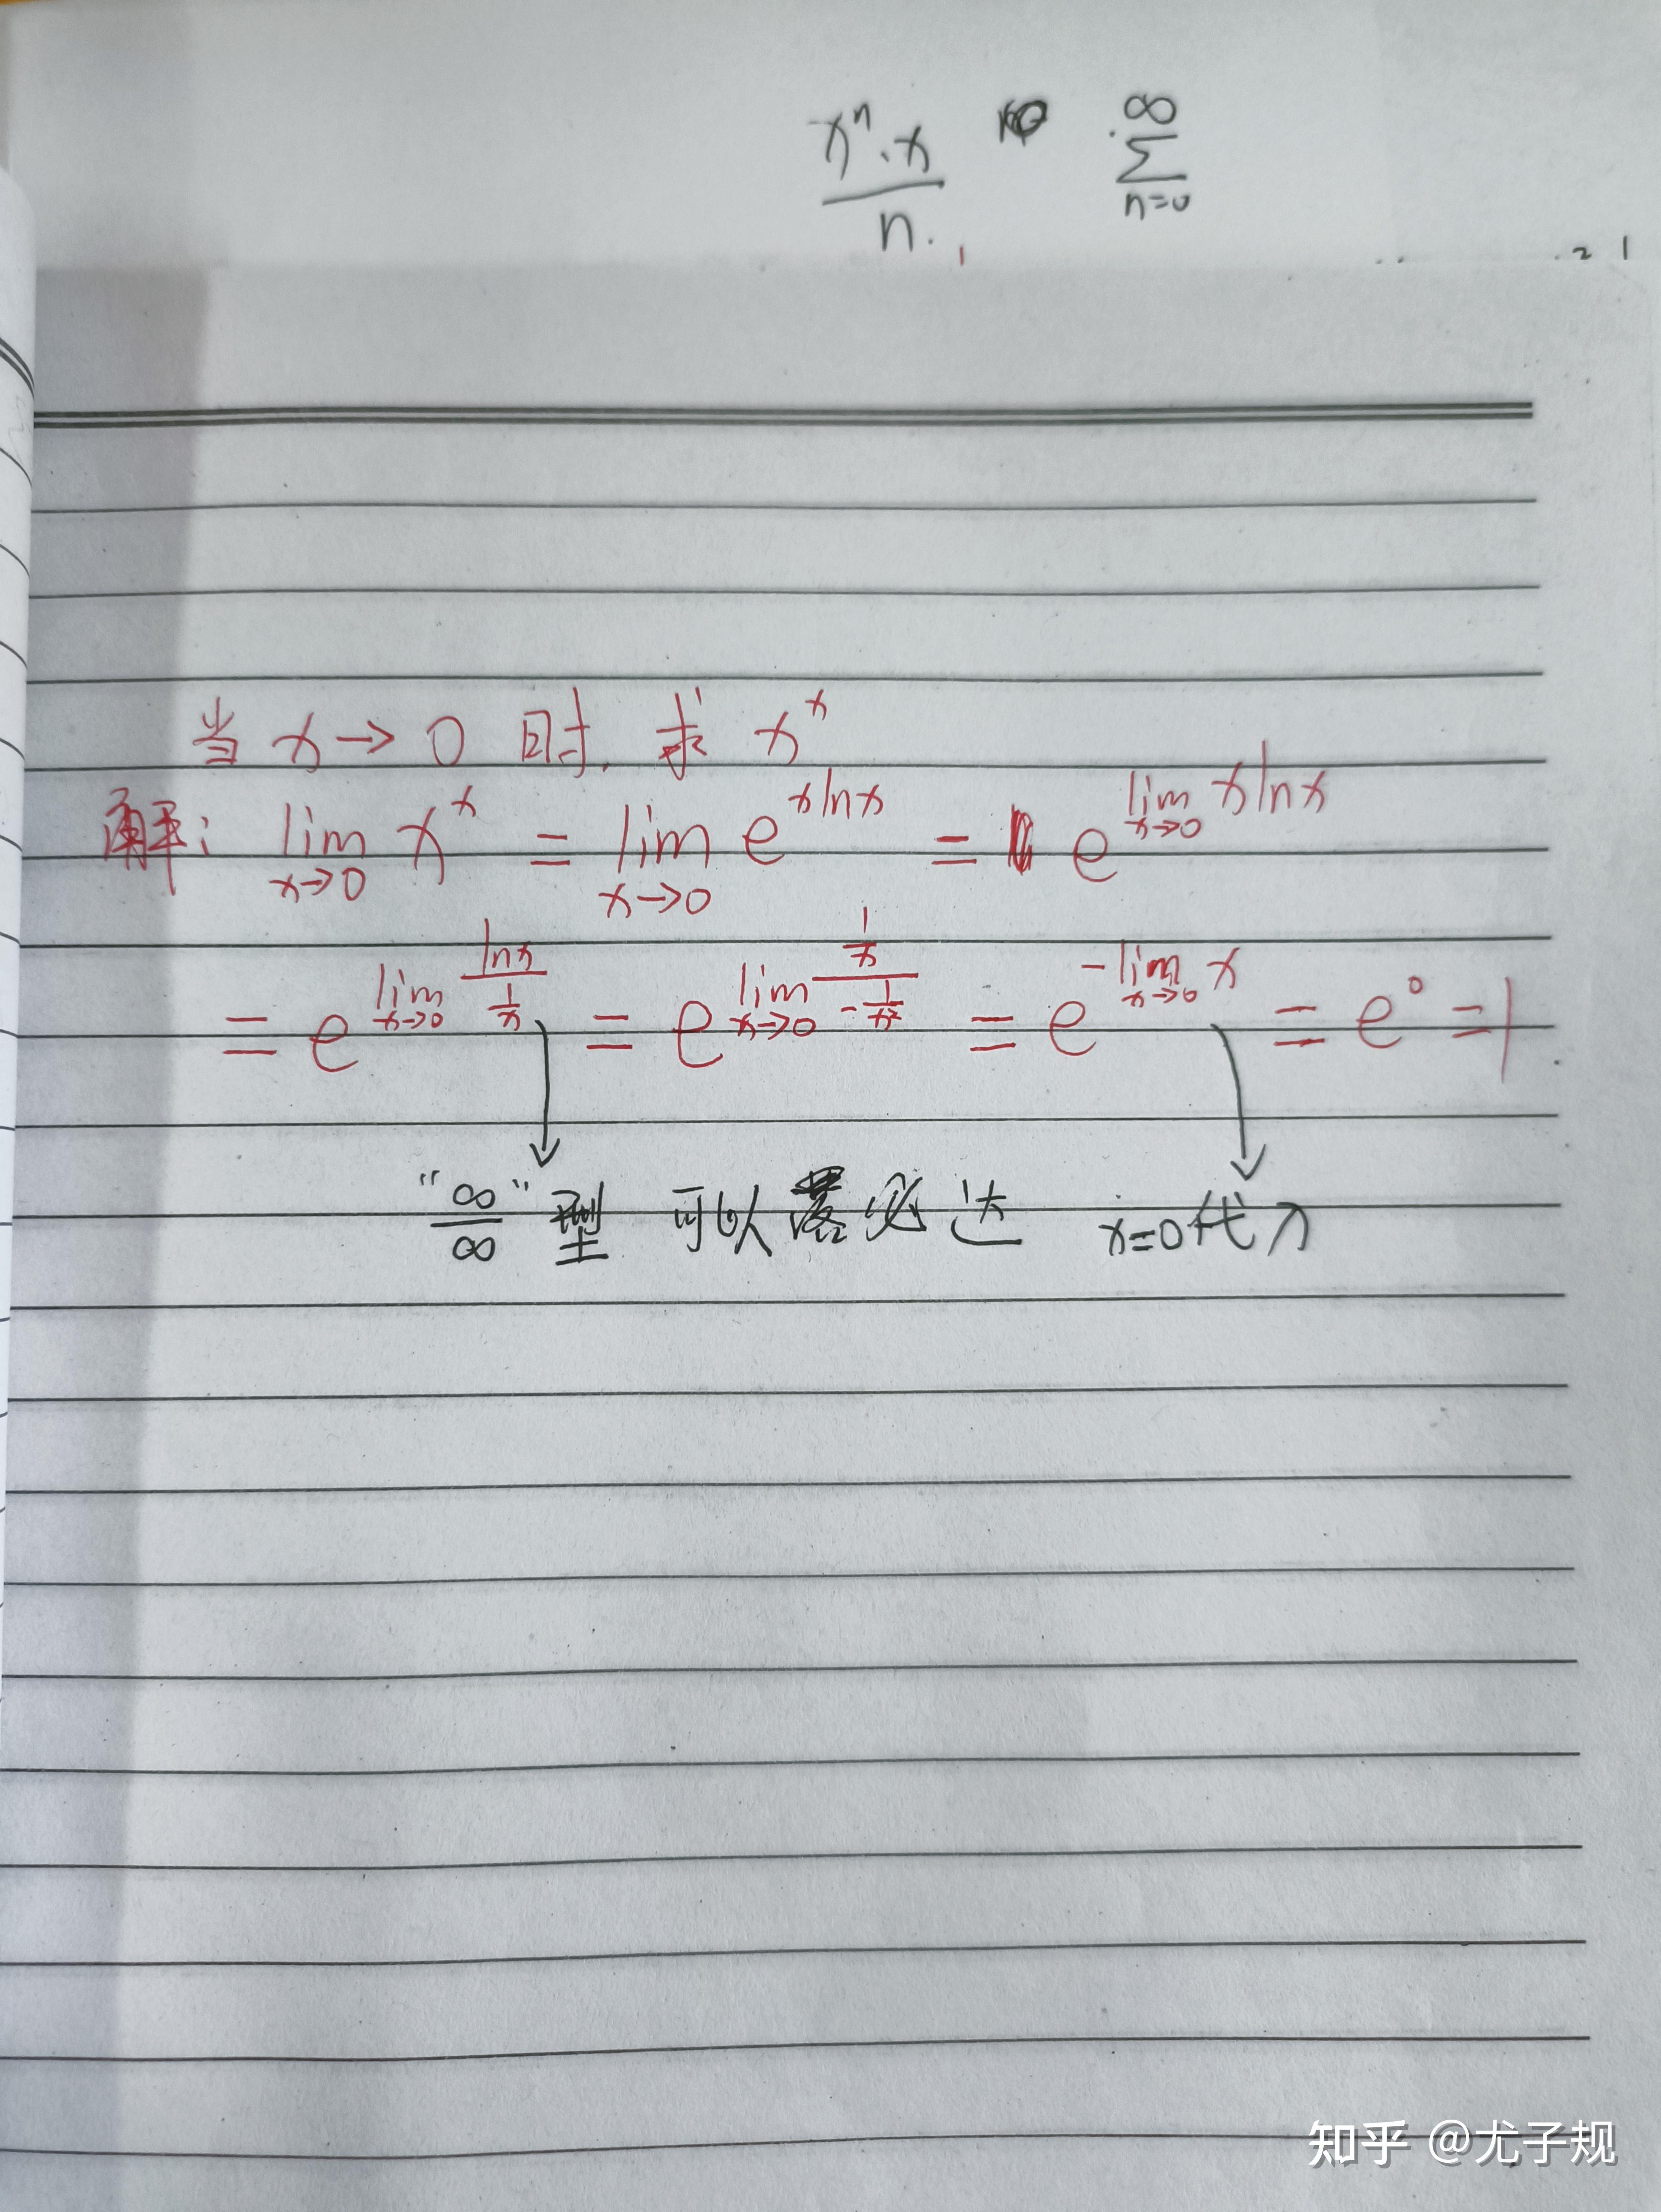 xⁿ·x / n. ∞ Σ n=0
当 x→0 时, 求 x^x
解: lim x→0 x^x = lim x→0 e^(xlnx) = e^(lim x→0 xlnx)
= e^(lim x→0 lnx / (1/x)) = e^(lim x→0 (1/x) / (-1/x²)) = e^(-lim x→0 x) = e^0 = 1
"∞/∞" 型 可以落必达 x=0代入
知乎 @尤子规